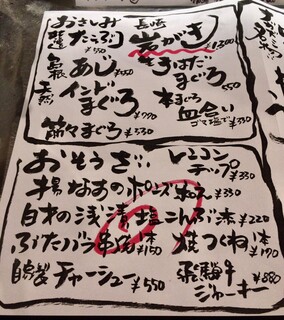 おさしみ
たこぶつ
長崎 岩がき ¥1300
島根 あじ
きはだまぐろ
天然 インドまぐろ ¥770
本まぐろ
血合い
ゴマ塩で ¥330
筋々まぐろ ¥330
おそうざい
レンコンチップ ¥330
揚なすのポンズ和え ¥330
白才の浅漬 塩こんぶ漬 ¥220
ぶたバラ串焼 1本 ¥150
焼つくね 1本 ¥170
自家製 チャーシュー ¥550
飛騨牛ジャーキー ¥880